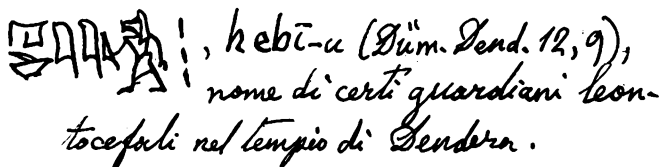 , hebī-u (Düm. Dend. 12, 9),
nome di certi guardiani leon-
tocefali nel tempio di Dendera.